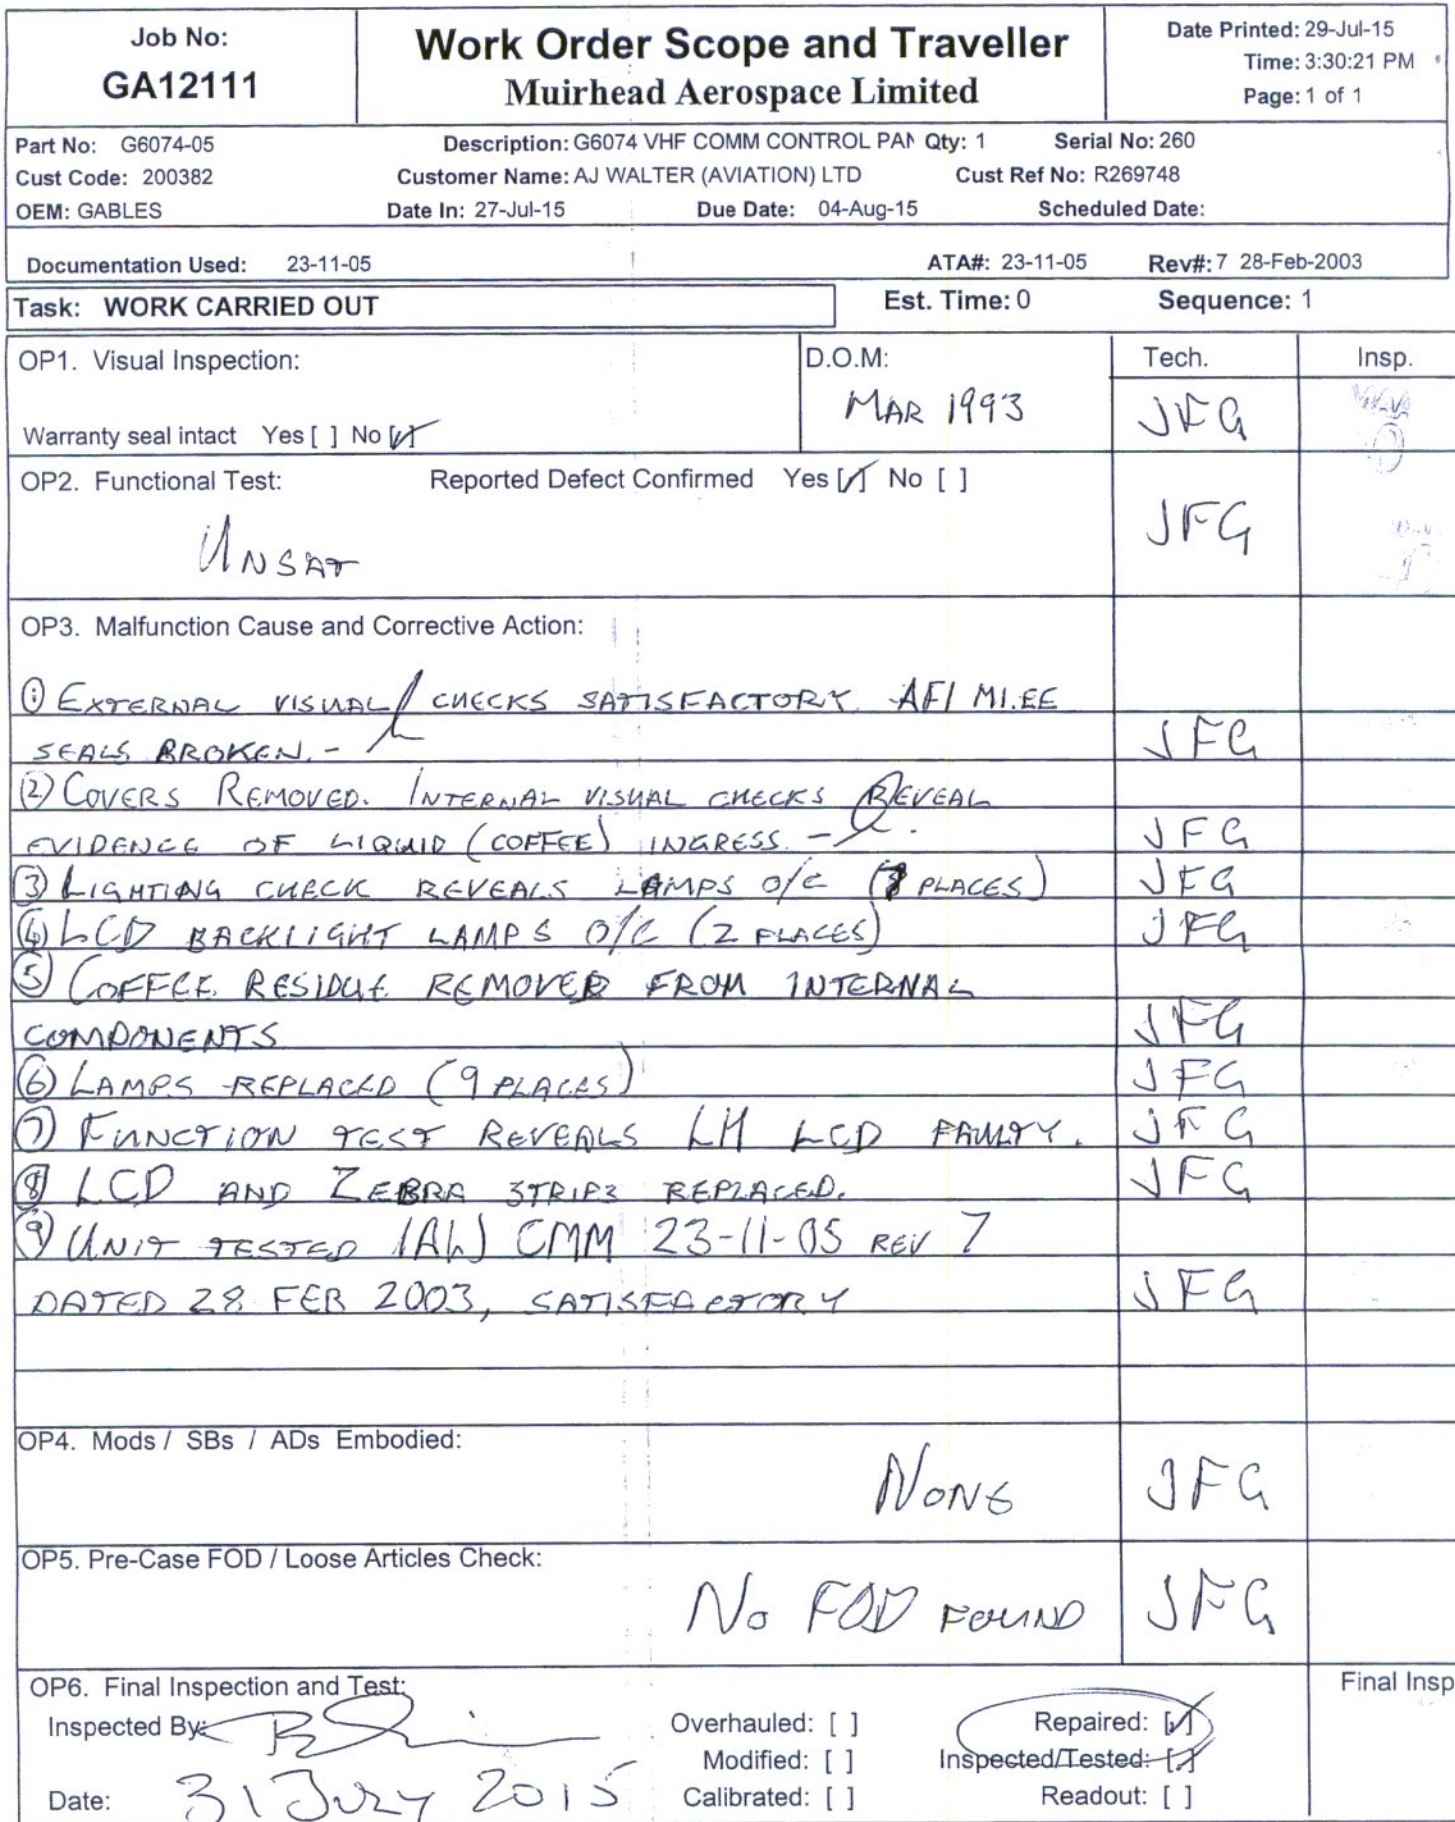 Job No:
GA12111
Work Order Scope and Traveller
Muirhead Aerospace Limited
Date Printed: 29-Jul-15
Time: 3:30:21 PM
Page: 1 of 1
Part No: G6074-05 Description: G6074 VHF COMM CONTROL PAN Qty: 1 Serial No: 260
Cust Code: 200382 Customer Name: AJ WALTER (AVIATION) LTD Cust Ref No: R269748
OEM: GABLES Date In: 27-Jul-15 Due Date: 04-Aug-15 Scheduled Date:
Documentation Used: 23-11-05 ATA#: 23-11-05 Rev#: 7 28-Feb-2003
Task: WORK CARRIED OUT Est. Time: 0 Sequence: 1
OP1. Visual Inspection: D.O.M: Tech. Insp.
MAR 1993 JFG
Warranty seal intact Yes [ ] No [✓]
OP2. Functional Test: Reported Defect Confirmed Yes [✓] No [ ]
UNSAT JFG
OP3. Malfunction Cause and Corrective Action:
① EXTERNAL VISUAL CHECKS SATISFACTORY. AFI MI.EE
SEALS BROKEN. - JFG
② COVERS REMOVED. INTERNAL VISUAL CHECKS REVEAL
EVIDENCE OF LIQUID (COFFEE) INGRESS. - JFG
③ LIGHTING CHECK REVEALS LAMPS O/C ( PLACES) JFG
④ LCD BACKLIGHT LAMPS O/C (2 PLACES) JFG
⑤ COFFEE RESIDUE REMOVED FROM INTERNAL
COMPONENTS JFG
⑥ LAMPS REPLACED (9 PLACES) JFG
⑦ FUNCTION TEST REVEALS LH LCD FAULTY. JFG
⑧ LCD AND ZEBRA STRIPS REPLACED. JFG
⑨ UNIT TESTED IAW CMM 23-11-05 REV 7
DATED 28 FEB 2003, SATISFACTORY JFG
OP4. Mods / SBs / ADs Embodied:
NONE JFG
OP5. Pre-Case FOD / Loose Articles Check:
No FOD FOUND JFG
OP6. Final Inspection and Test: Final Insp
Inspected By: Overhauled: [ ] Repaired: [✓]
Modified: [ ] Inspected/Tested: [✓]
Date: 31 JULY 2015 Calibrated: [ ] Readout: [ ]